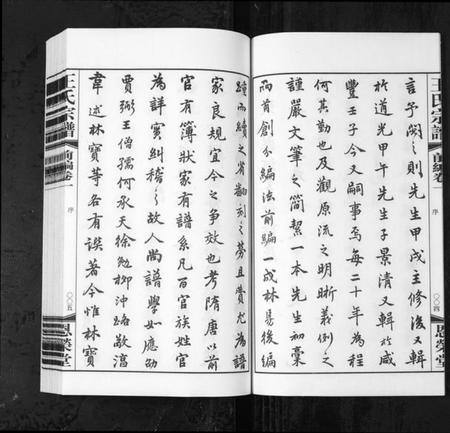 王氏宗譜
前編卷一
序
〇〇四
恩榮堂
言予閱之則先生甲戌主修後又輯
於道光甲午先生子景清又輯於咸
豐壬子今又嗣事焉每二十年為程
何其勤也及觀原流之明晰義例之
謹嚴文筆之簡絜一本先生初稾
而首創分編法前編一成林易後編
踵而續之省劻刻之勞且費尤為譜
家良規宜今之爭效也考隋唐以前
官有簿狀家有譜系凡百官族姓官
為詳實糾稽之故人尚譜學如應劭
賈弼王僧孺何承天徐勉柳沖路敬淳
韋述林寶等各有譔著今惟林寶
王氏宗譜
前編卷一
序
恩榮堂